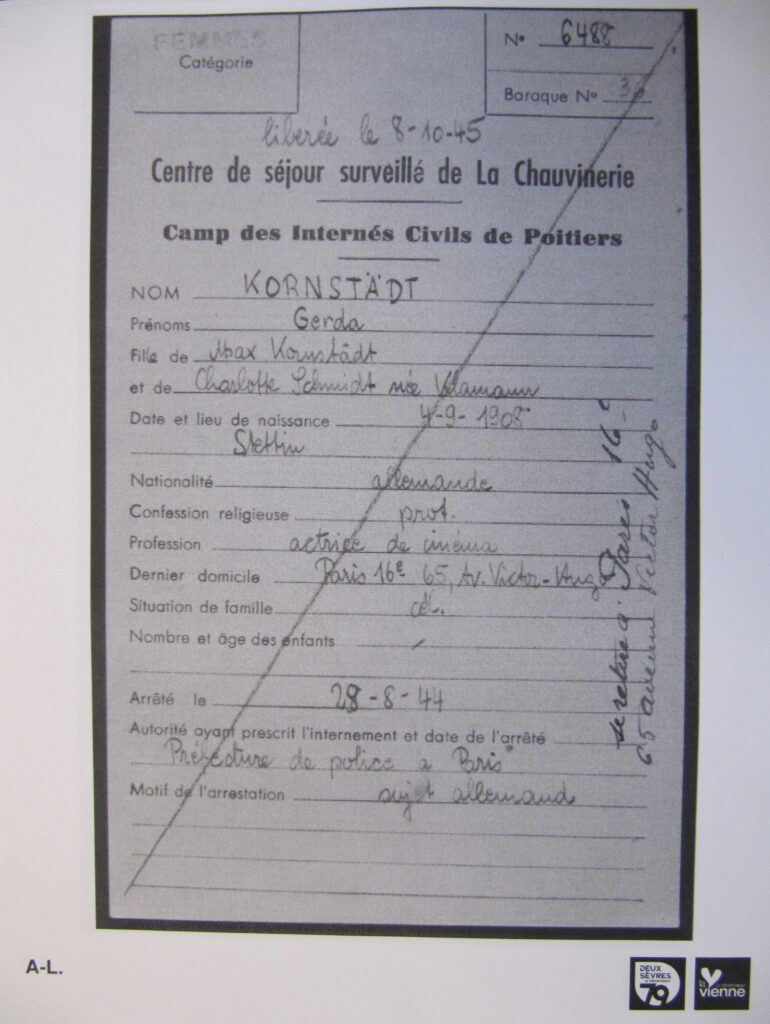 FEMMES
Catégorie
N° 6488
Baraque N°
libérée le 8-10-45
Centre de séjour surveillé de La Chauvinerie
Camp des Internés Civils de Poitiers
NOM KORNSTÄDT
Prénoms Gerda
Fille de Max Kornstädt
et de Charlotte Schmidt née
Date et lieu de naissance 4-9-1908
Stettin
Nationalité allemande
Confession religieuse prot.
Profession actrice de cinéma
Dernier domicile Paris 16e 65, Av. Victor-Hugo
Situation de famille cél.
Nombre et âge des enfants
Arrêté le 28-8-44
Autorité ayant prescrit l'internement et date de l'arrêté
Préfecture de police à Paris
Motif de l'arrestation sujet allemand
se retire à Paris 16e
65 avenue Victor Hugo
A-L.
DEUX
SÈVRES
79
la
vienne